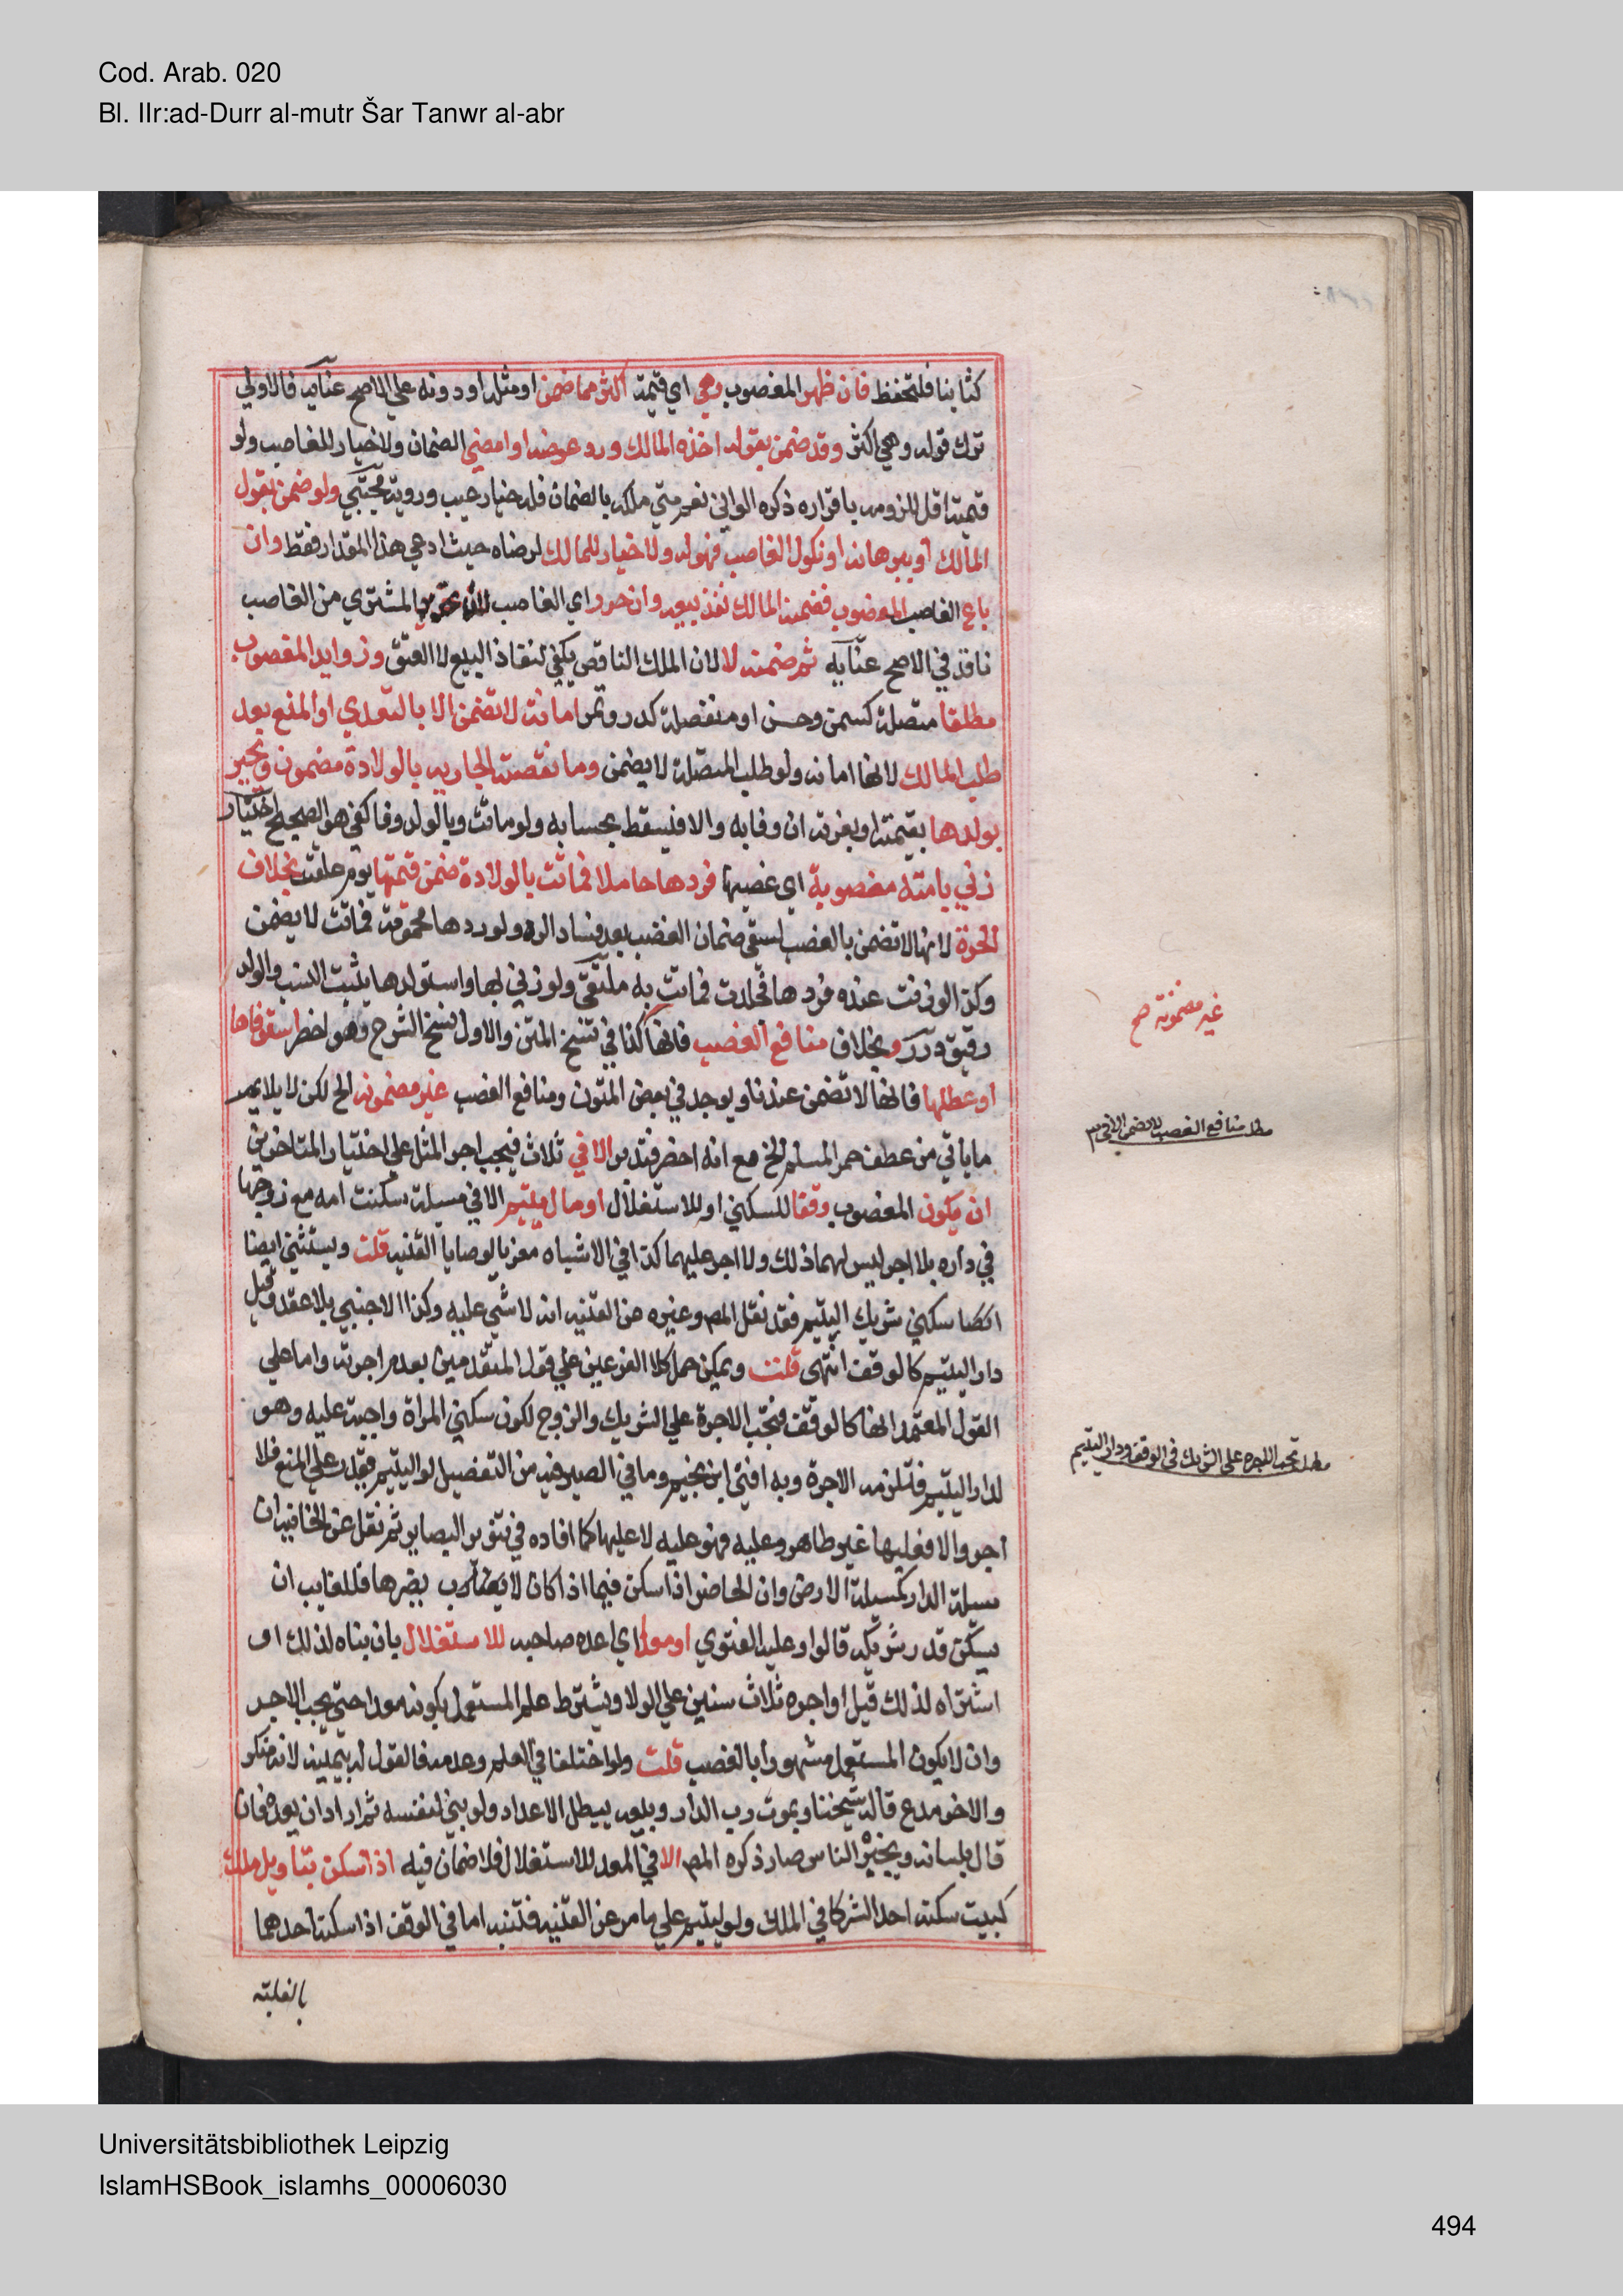 Cod. Arab. 020
Bl. IIr:ad-Durr al-mutr Šar Tanwr al-abr
كتابنا فلتحفظ فان ظهر المغصوب وهي اي قيمته اكثر مما ضمن او مثله او دونه علي الاصح عنايه فالاولي
ترك قوله وهي اكثر وقد ضمن بقوله اخذه المالك ورد عوضه او امضي الضمان ولا خيار للغاصب ولو
قيمته اقل للزومه باقراره ذكره الواني نعم متي ملكه بالضمان فله خيار عيب وروية مجتبي ولو ضمن بقول
المالك او ببرهانه او نكول الغاصب فهو له ولا خيار للمالك لرضاه حيث ادعي هذا المقدار فقط وان
باع الغاصب المغصوب فضمنه المالك نفذ بيعه وان حرر اي الغاصب المشتري من الغاصب
نافذ في الاصح عنايه ثم ضمنه لا لان الملك الناقص يكفي لنفاذ البيع لا العتق وزوايد المغصوب
مطلقا متصلة كسمن وحسن او منفصلة كدر وثمر امانة لا تضمن الا بالتعدي او المنع بعد
طلب المالك لانها امانه ولو طلب المتصلة لا يضمن وما نقصته الجاريه بالولادة مضمون ويجبر
بولدها بقيمته او بغرته ان وفا به والا فيسقط بحسابه ولو ماتت وبالولد وفا كفي هو الصحيح اختيار
زني بامة مغصوبة اي غصبها فردها حاملا فماتت بالولادة ضمن قيمتها يوم علقت بخلاف
الحرة لانها لا تضمن بالغصب ليبقي ضمان الغصب بعد فساد الرد ولو ردها محمومة فماتت لا يضمن
وكذا لو زنت عنده فردها فجلدت فماتت به ملتقي ولو زني بها واستولدها يثبت النسب والولد
رقيق درر وبخلاف منافع الغصب فانها كذا في نسخ المتن والاول نسخ الشرح وهو اخصر استوفاها
او عطلها فانها لا تضمن عندنا ويوجد في بعض المتون ومنافع الغصب غير مضمونه الخ لكن لا يلايمه
ما ياتي من عطف خمر المسلم الخ مع انه اخصر فتدبر الا في ثلاث فيجب اجر المثل علي اختيار المتاخرين
ان يكون المغصوب وقفا للسكني او للاستغلال او مال يتيم الا في مسيلة سكنت امه مع زوجها
في داره بلا اجر ليس لهما ذلك ولا اجر عليهما كذا في الاشباه معزيا لوصايا القنيه قلت ويستثني ايضا
سكني شريك اليتيم فقد نقل المص وغيره عن القنيه انه لا شي عليه وكذا الاجنبي بلا عقد وقيل
دار اليتيم كالوقف انتهي قلت ويمكن حمل كلا الفرعين علي قول المتقدمين بعدم اجرته واما علي
القول المعتمد انها كالوقف فتجب الاجرة علي الشريك والزوج لكون سكني المراة واجبة عليه وهو
لدار اليتيم فتلزمه الاجرة وبه افتي ابن نجيم وما في الصيرفيه من التفصيل لو اليتيم يقدر علي المنع فلا
اجر والا فعليها غير ظاهر وعليه فهو عليه لا عليها كما افاده في تنوير البصاير ثم نقل عن الخانيه ان
مسيلة الدار كمسيلة الارض وان الحاضر اذا سكن فيها اذا كان لا يضرها فللغايب ان
يسكن قدر شريكه قالوا وعليه الفتوي او معدا اي اعده صاحبه للاستغلال بان بناه لذلك او
اشتراه لذلك قيل او اجره ثلاث سنين علي الولا ويشترط علم المستعمل بكونه معدا حتي يجب الاجر
وان لا يكون المستعمل مشهورا بالغصب قلت ولو اختلفا في العلم وعدمه فالقول له بيمينه لانه منكر
والاخر مدع قاله شيخنا وبموت رب الدار وبيعه يبطل الاعداد ولو بني لنفسه ثم اراد ان يعده فان
قال بلسانه ويخبر الناس صار ذكره المص الا في المعد للاستغلال فلا ضمان فيه اذا سكن بتاويل ملك
كبيت سكنه احد الشركا في الملك ولو ليتيم علي ما مر عن القنيه فتنبه اما في الوقف اذا سكنه احدهما
بالغلبة
غير مضمونة صح
مطلب منافع الغصب لا تضمن الا في ٣
مطلب تجب الاجره علي الشريك في الوقف ودار اليتيم
Universitätsbibliothek Leipzig
IslamHSBook_islamhs_00006030
494